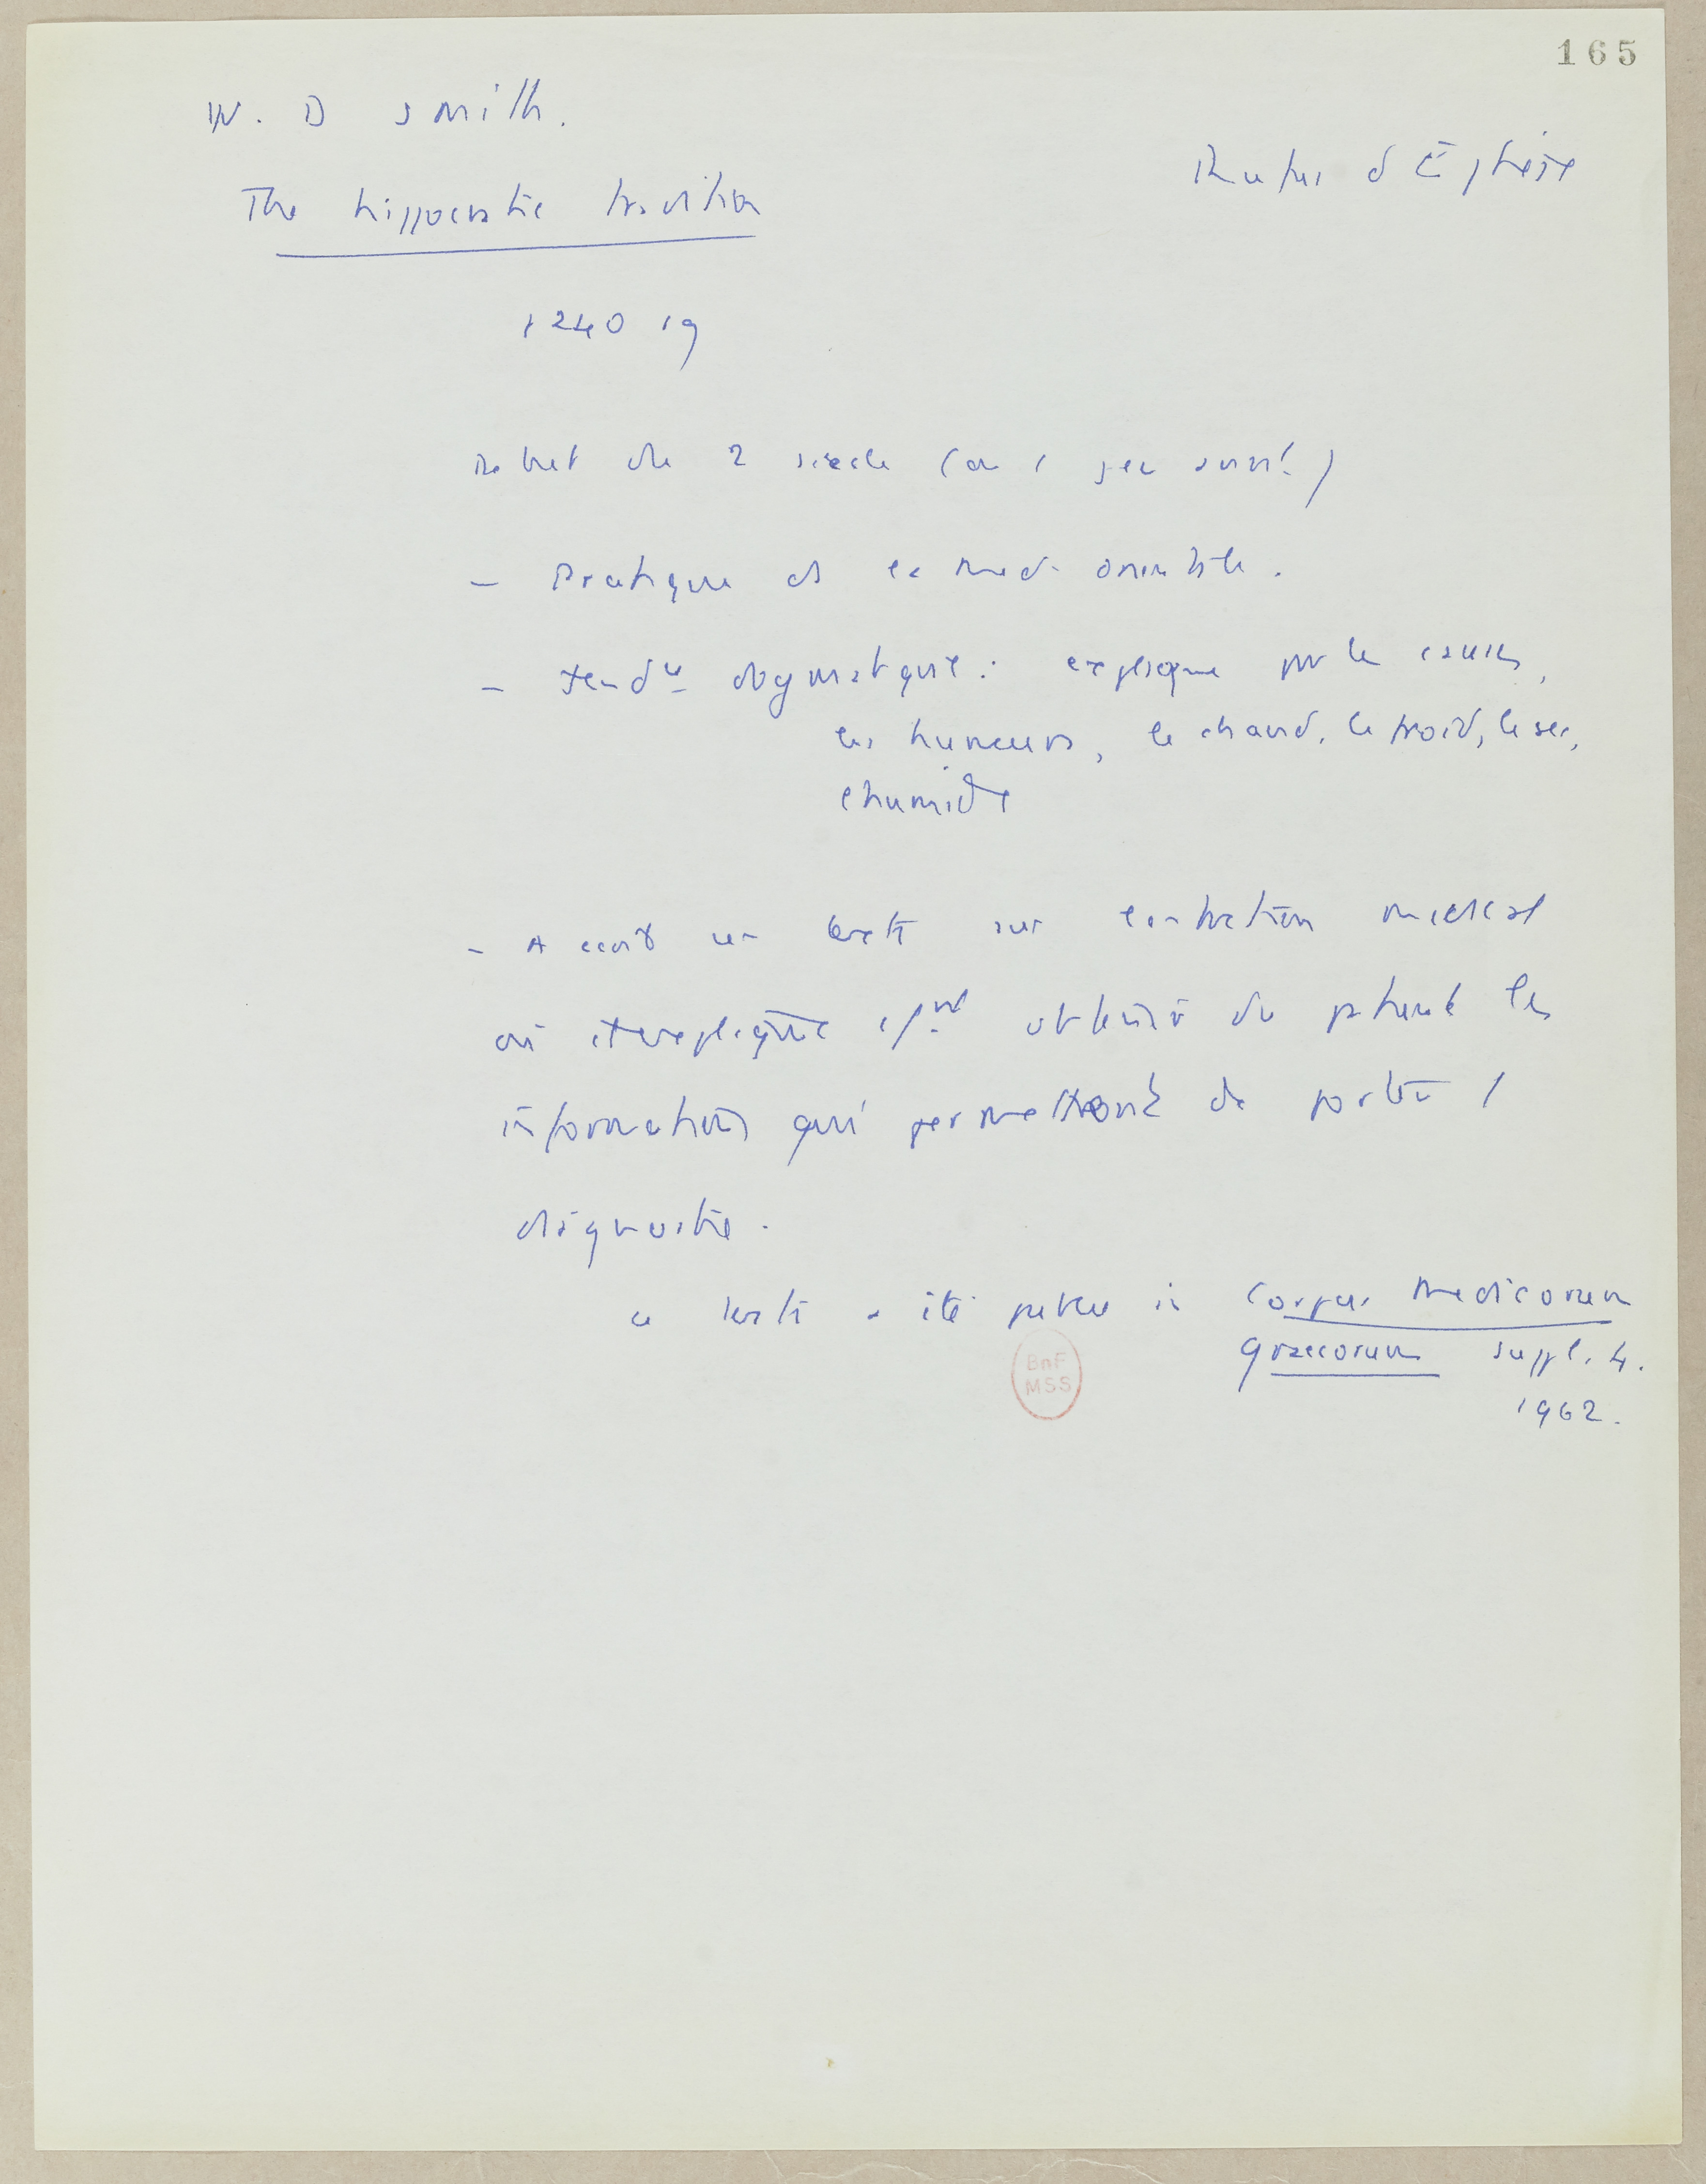 165
W. D Smith.
Rufus d'Éphèse
The hippocratic tradition
p 240 sq
Debut du 2 siecle (ou 1 peu avant)
- Pratique et
- tendce dogmatique : explique par les causes,
les humeurs, le chaud, le froid, le sec,
l'humide
- A ecrit un texte sur medical
où il explique cmt obtenir du patient les
informations qui permettront de porter 1
diagnostic.
ce texte a été publié in Corpus Medicorum
Graecorum suppl. 4.
1962.
BnF
MSS